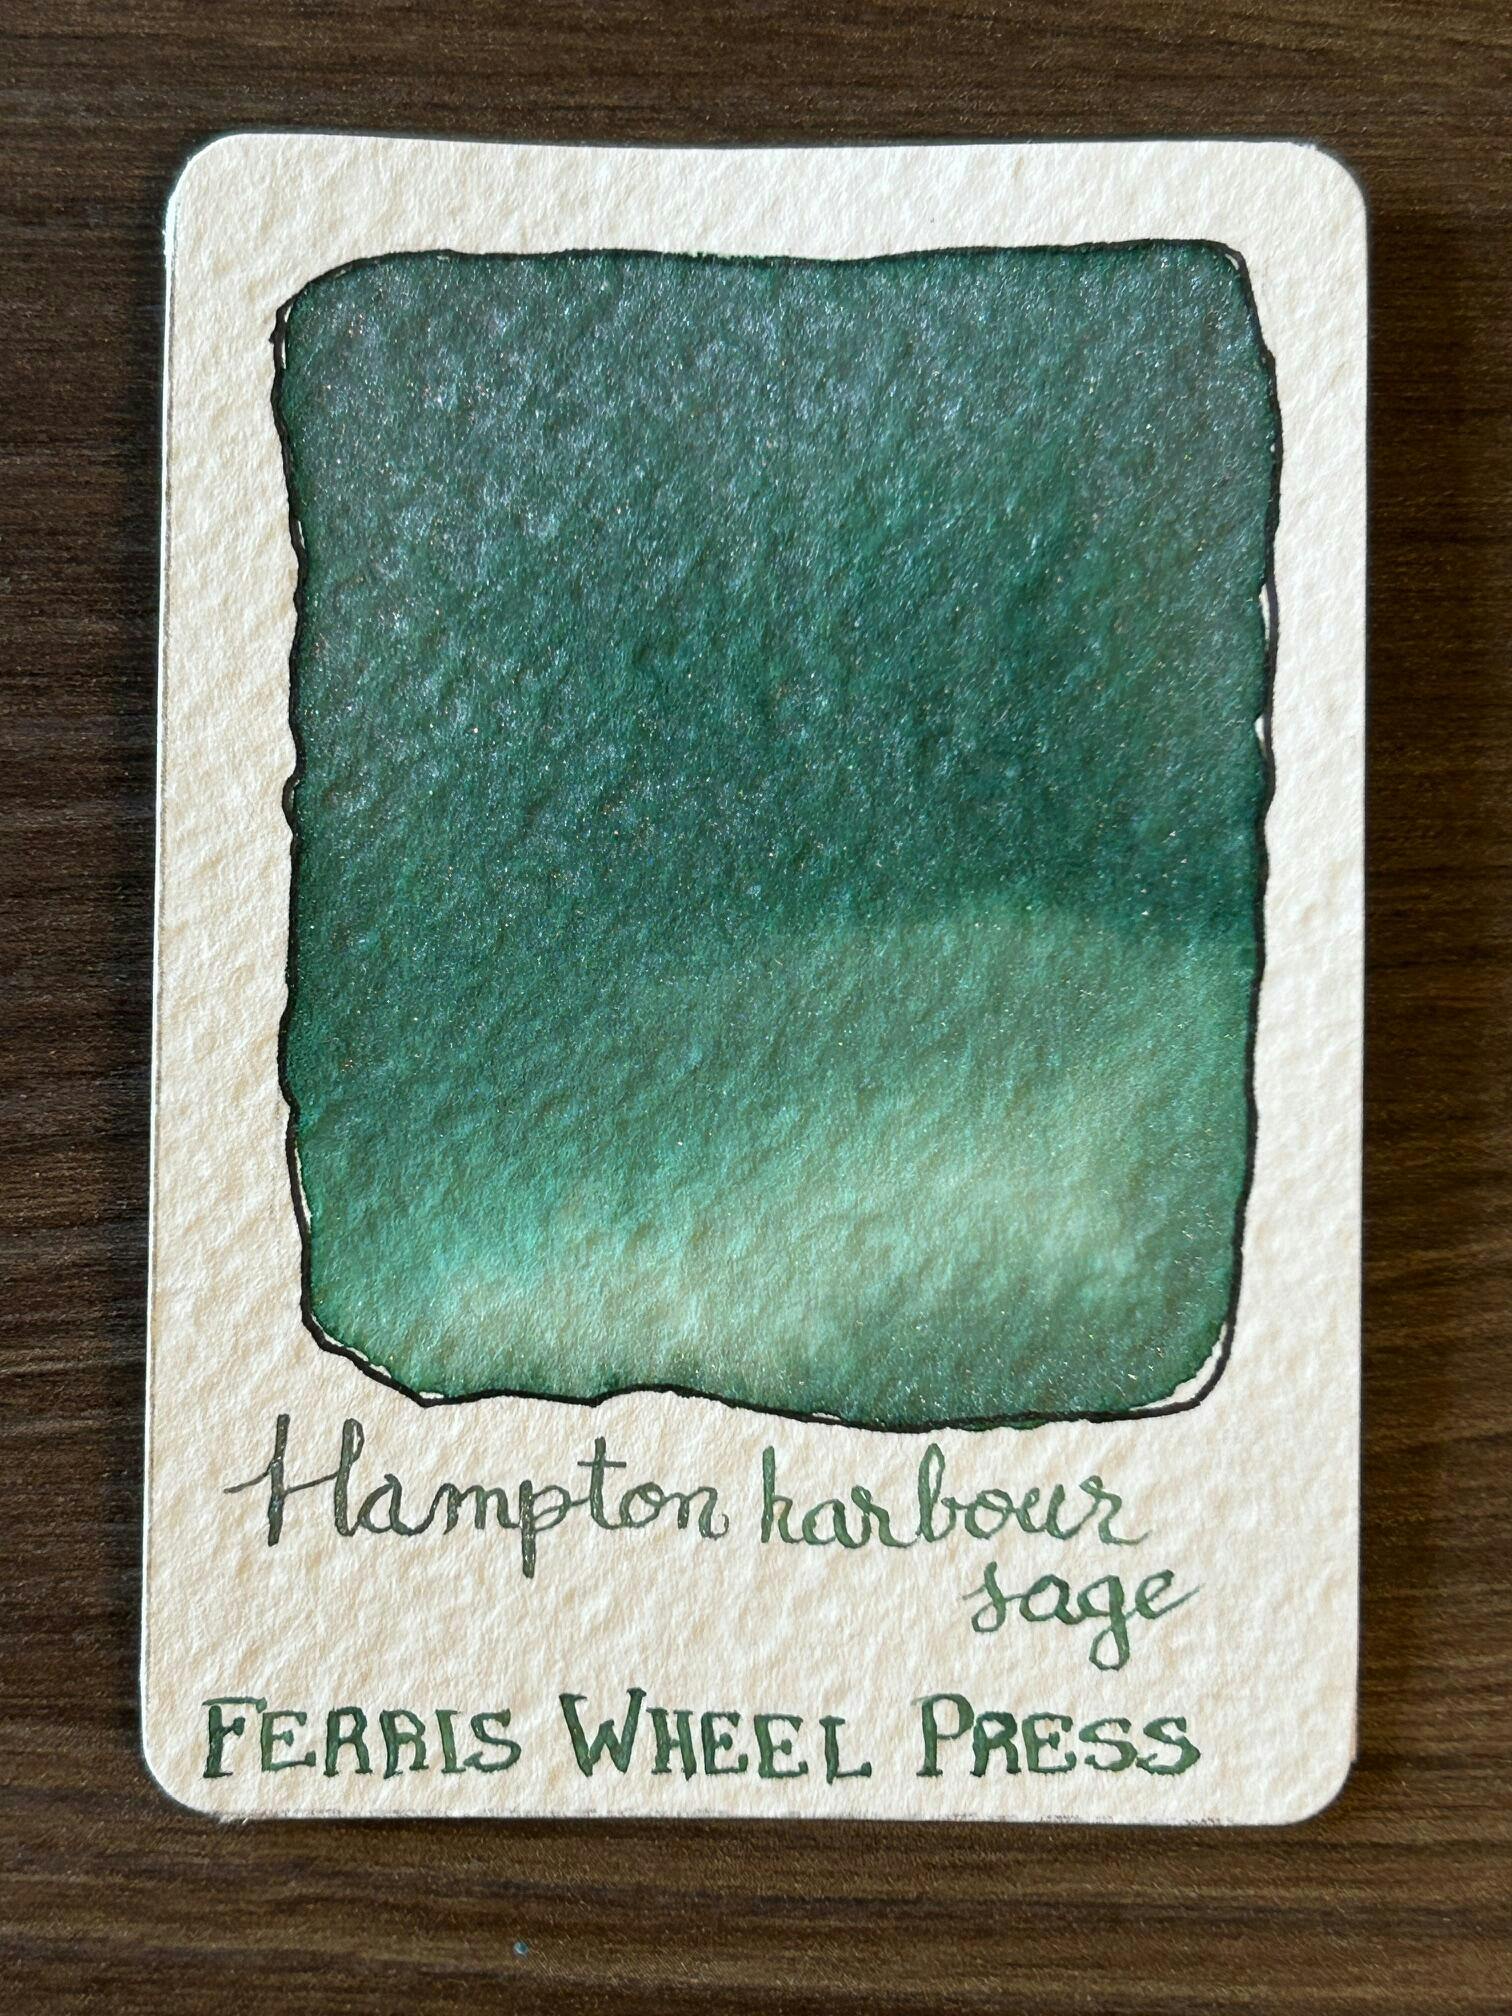 Hampton harbour
sage
FERRIS WHEEL PRESS